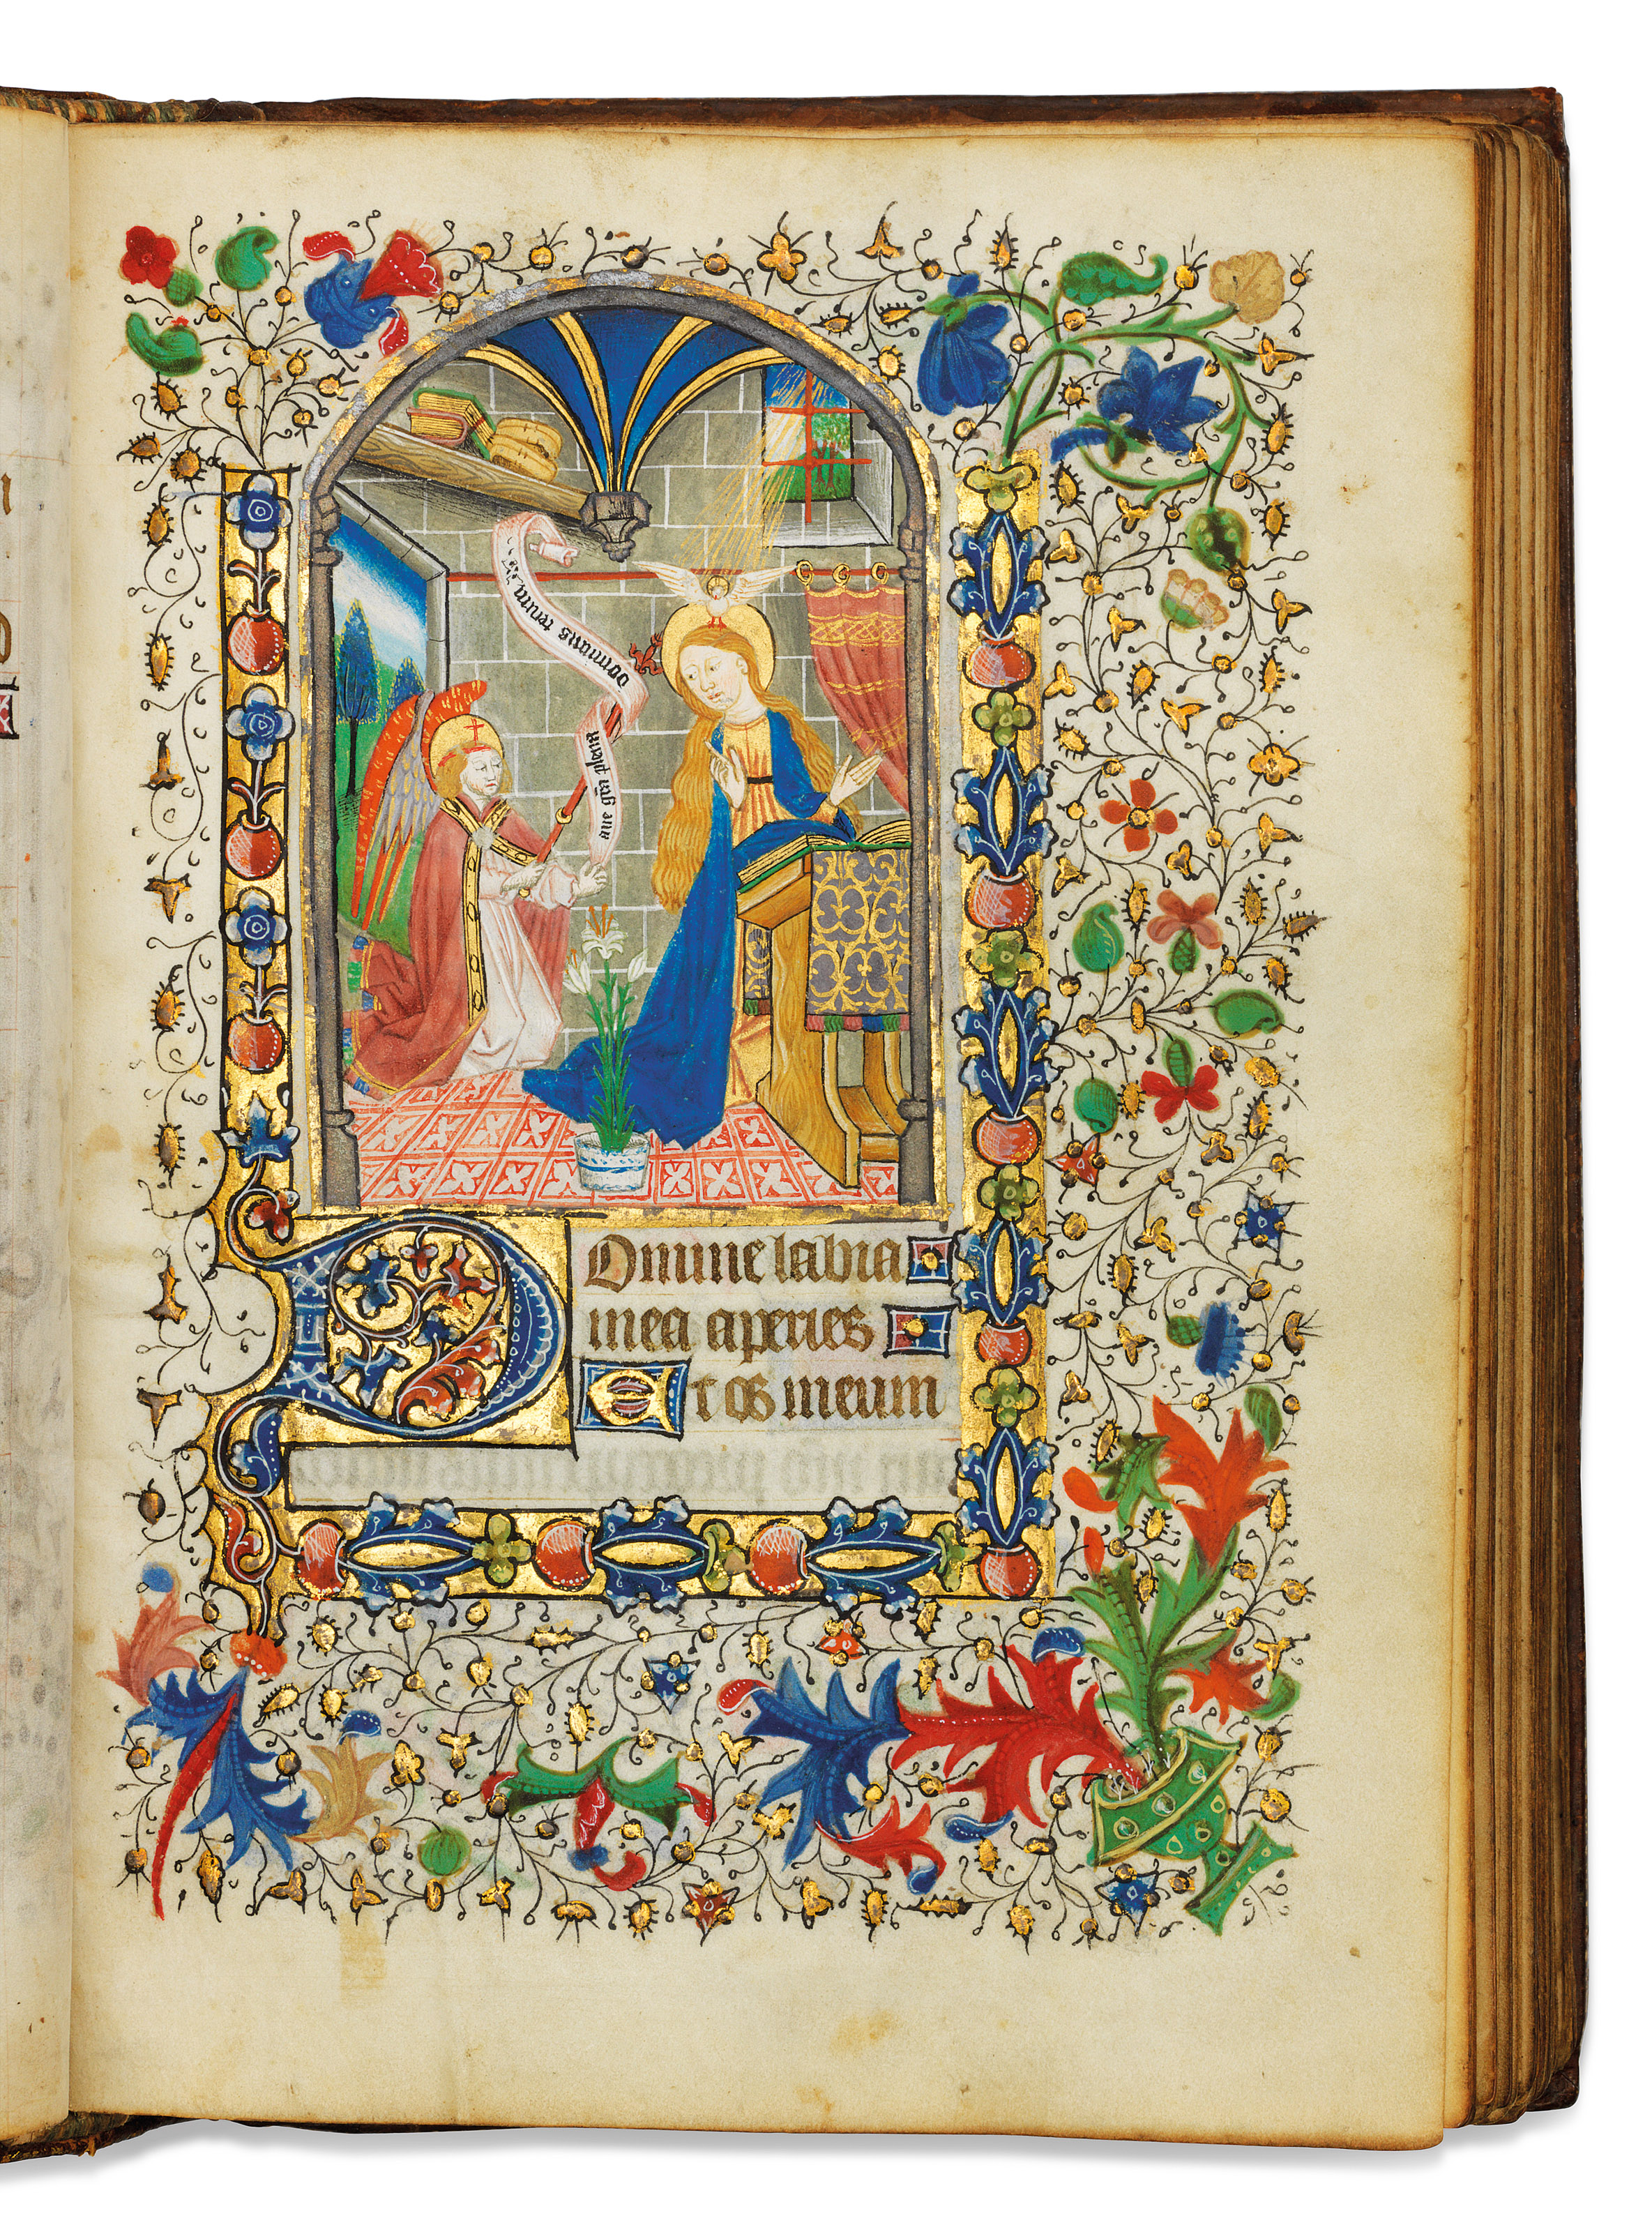 aue gr̄a plena
dominus tecum
Domine labia
mea aperies
Et os meum